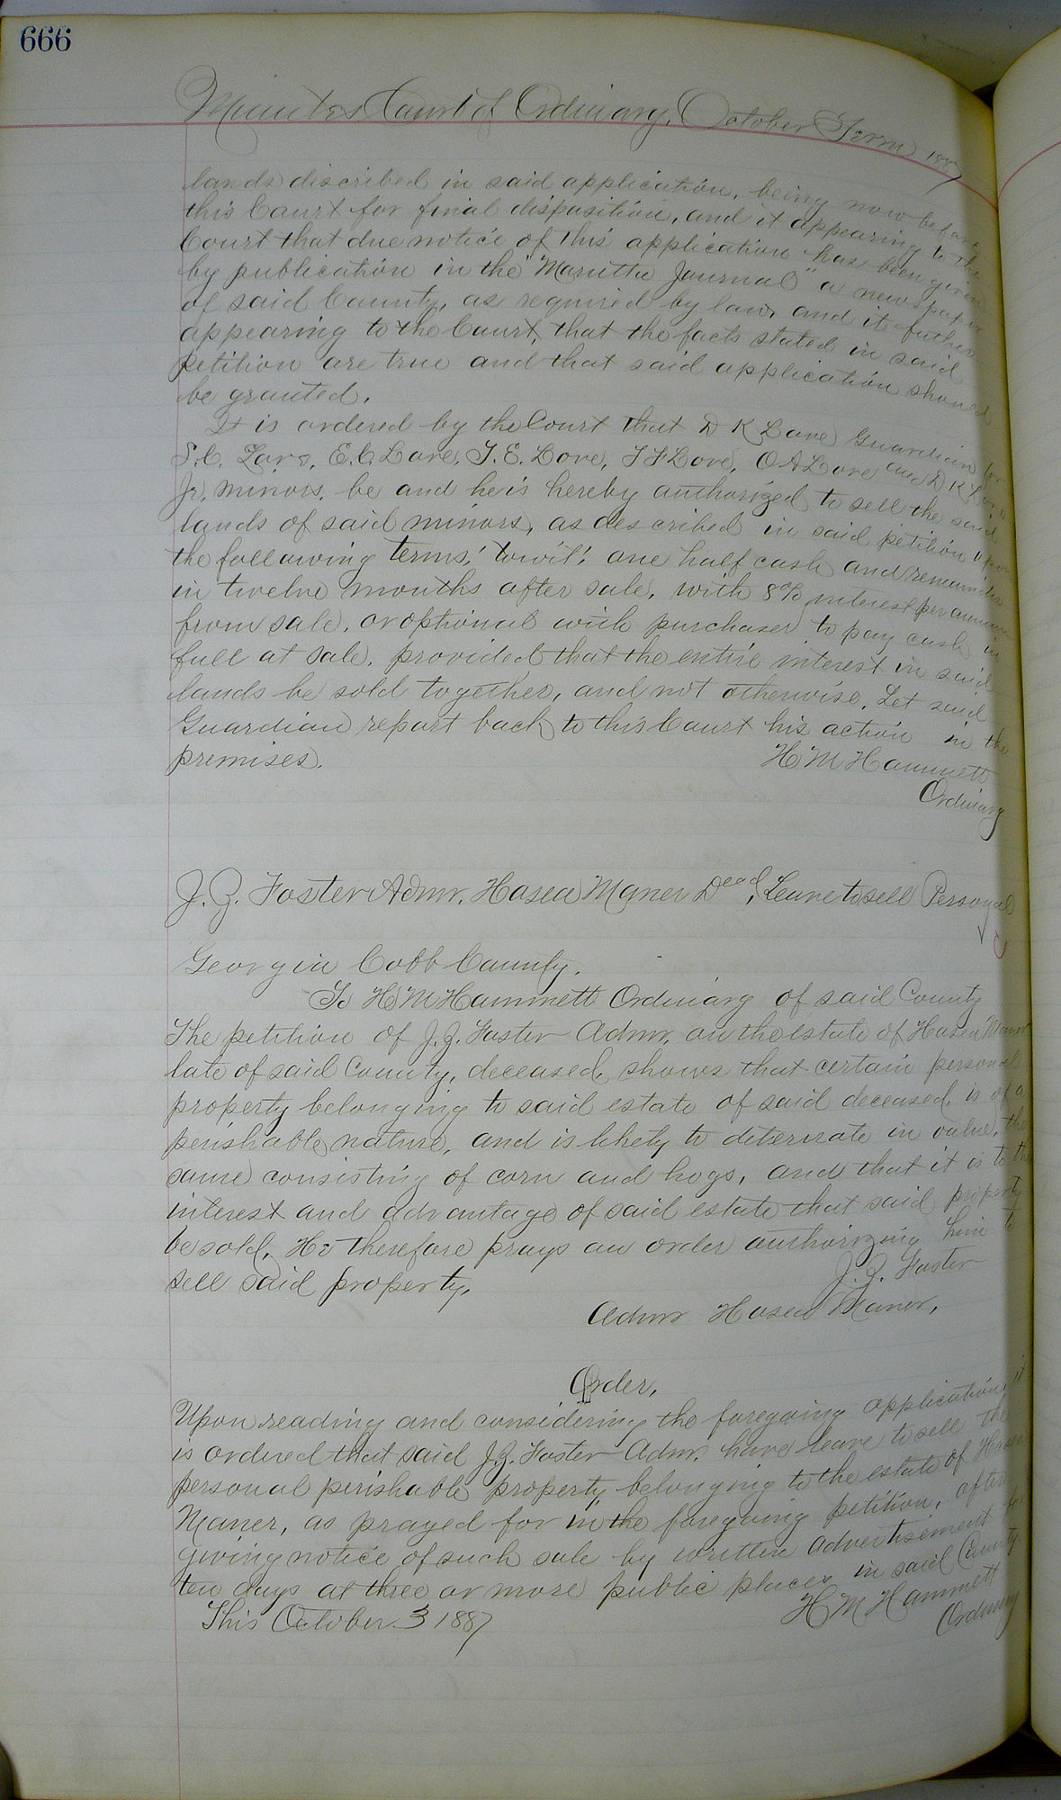 666
Minutes Court of Ordinary, October Term 1887
lands discribed in said application, being now before
this Court for final disposition, and it appearing to the
Court that due notice of this application has been given
by publication in the "Marietta Journal" a newspaper
of said County, as required by law, and it further
appearing to the Court, that the facts stated in said
petition are true and that said application should
be granted.
It is ordered by the Court that D K Love Guardian for
S. C. Love, E. C. Love, T. E. Love, T F Love, O A Love and D K Love
Jr, minors, be and he is hereby authorized to sell the said
lands of said minors, as described in said petition upon
the following terms: towit: one half cash and remainder
in twelve months after sale, with 8% interest per annum
from sale, or optional with purchaser to pay cash in
full at sale, provided that the entire interest in said
lands be sold together, and not otherwise. Let said
Guardian report back to this Court his action in the
premises. H M Hammett
Ordinary
J. Z. Foster Admr, Hosea Maner Dead, Leave to sell Personal
Georgia Cobb County.
To H M Hammett Ordinary of said County
The petition of J. Z. Foster Admr, on the estate of Hosea Maner
late of said County, deceased, shows that certain personal
property belonging to said estate of said deceased, is of a
perishable nature, and is likely to deteriate in value, the
same consisting of corn and hogs, and that it is to the
interest and advantage of said estate that said property
be sold, He therefore prays an order authorizing him to
sell said property, J. Z. Foster
Admr Hosea Maner,
Order,
Upon reading and considering the foregoing application, it
is ordered that said J. Z. Foster Admr. have leave to sell the
personal perishable property belonging to the estate of Hosea
Maner, as prayed for in the foregoing petition, after
giving notice of such sale by written advertisement for
ten days at three or more public places in said County
This October 3 1887 H M Hammett
Ordinary